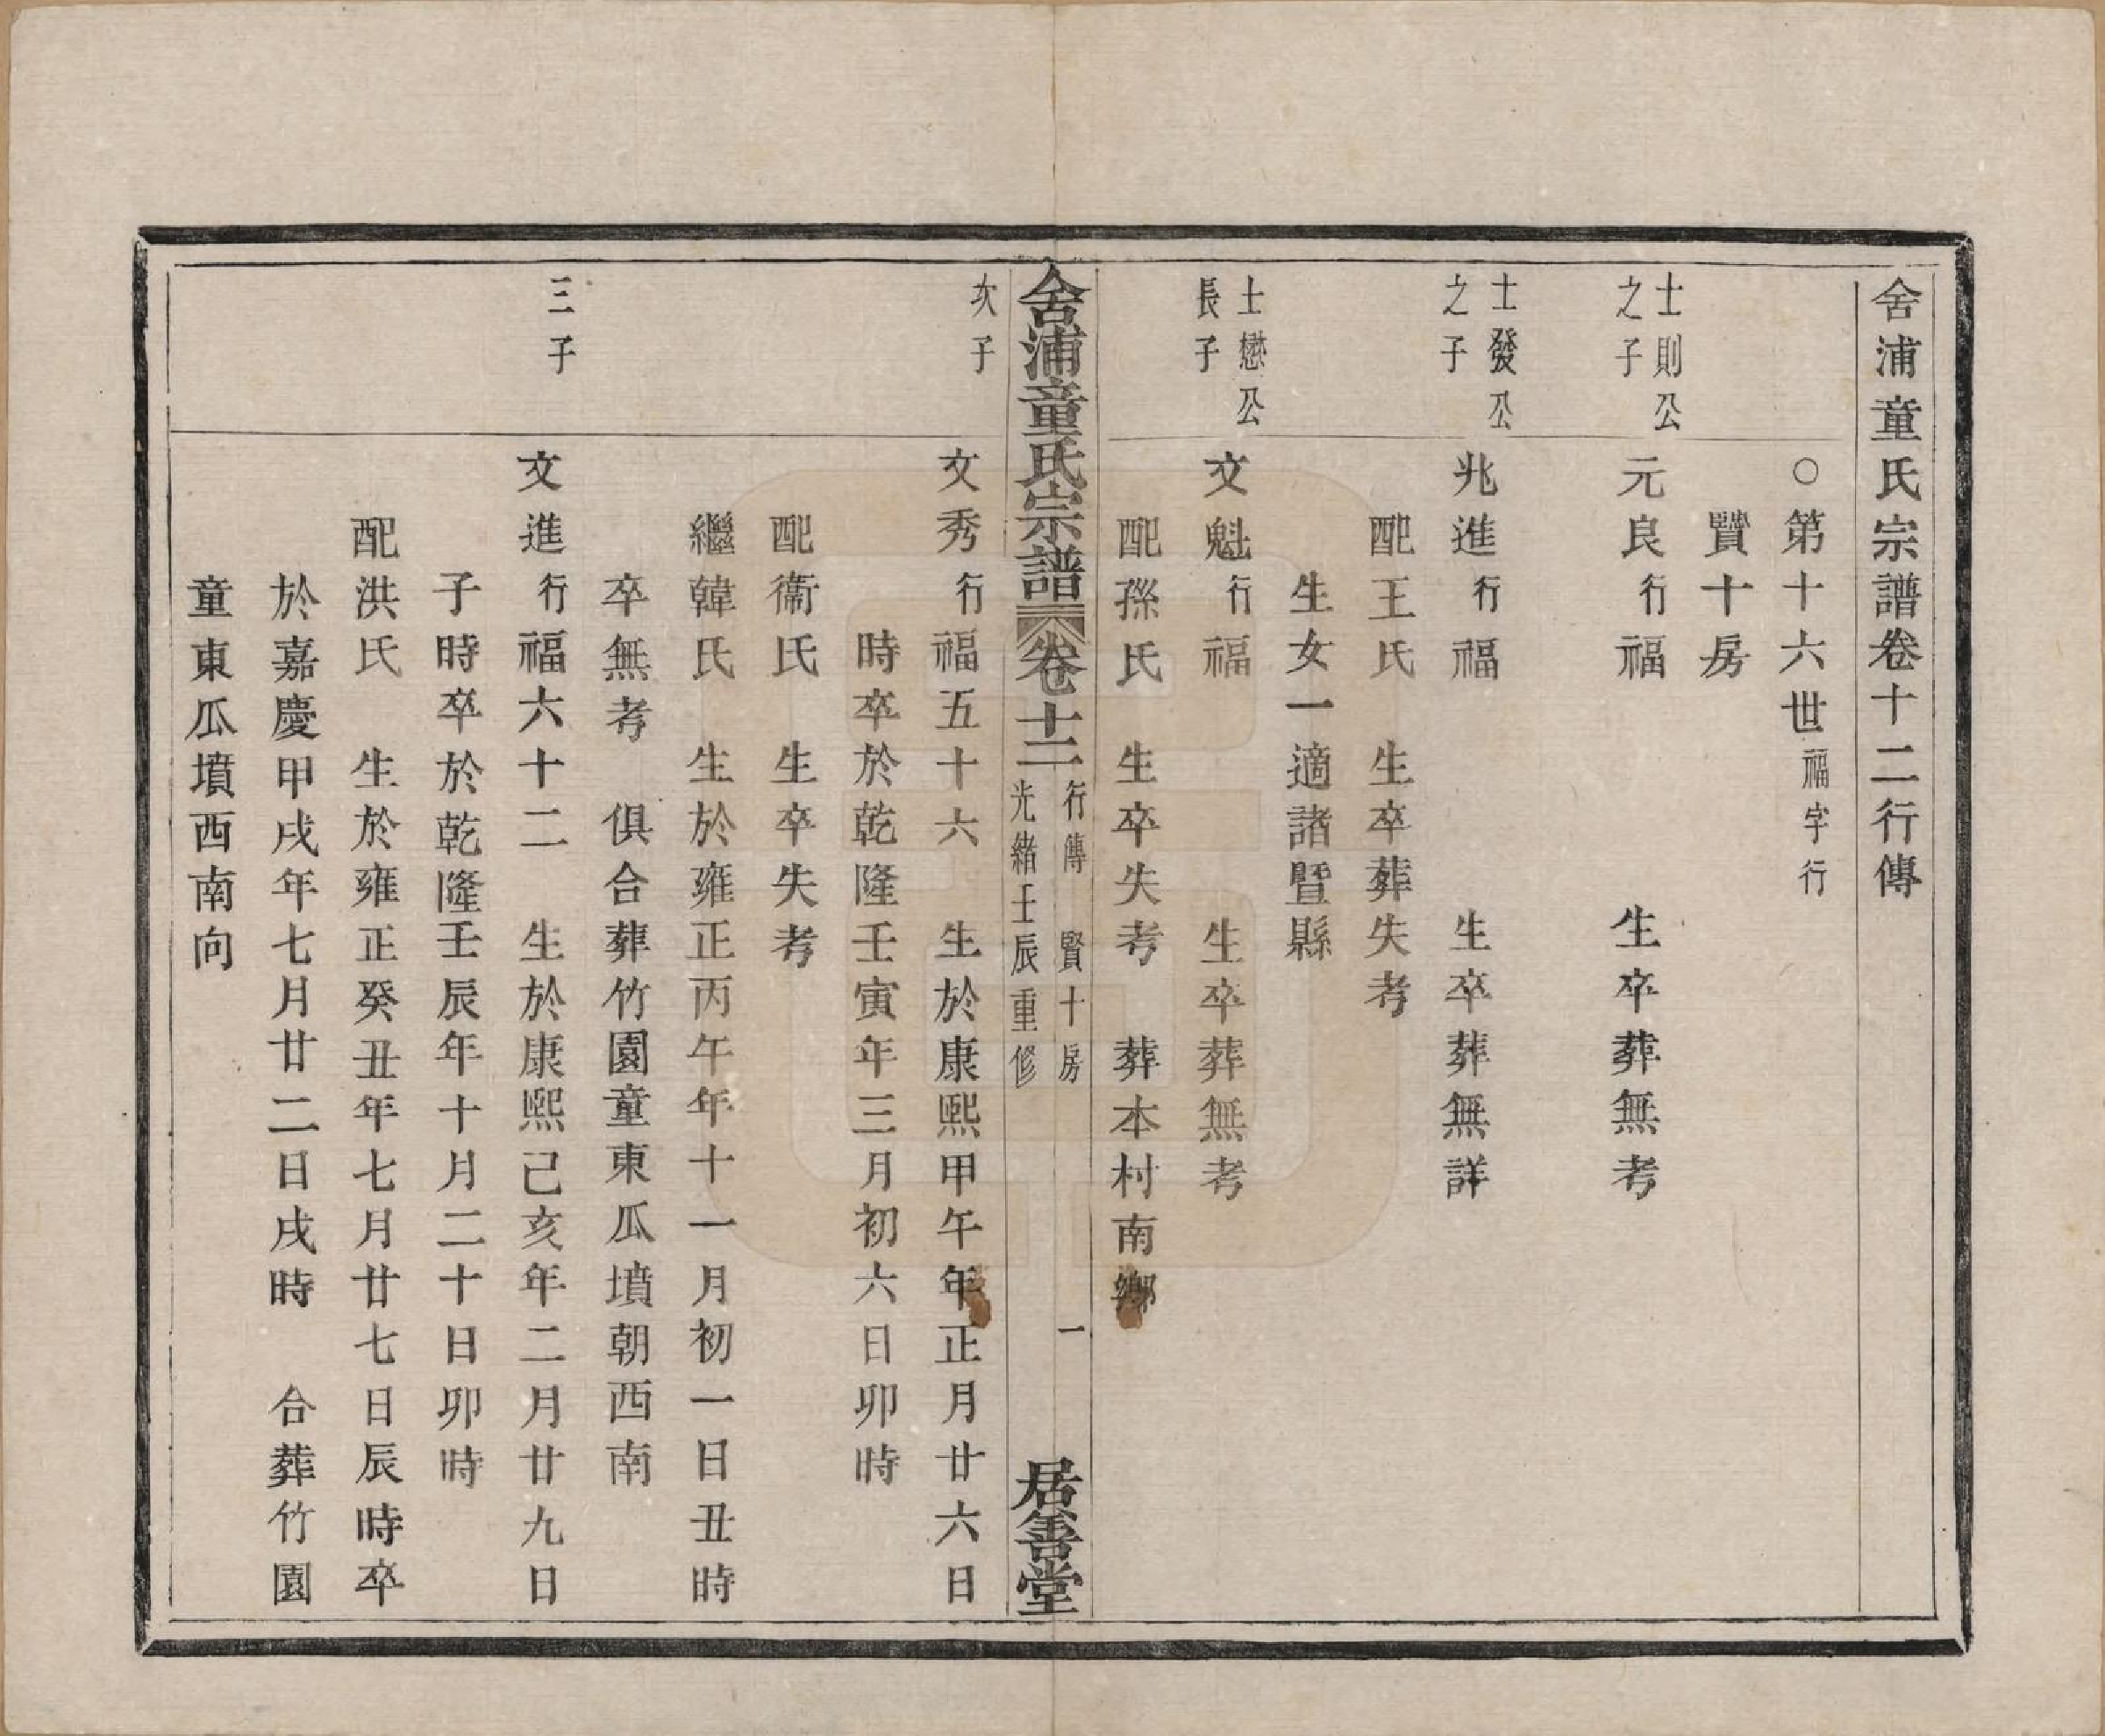 舍浦童氏宗譜卷十二行傳
○第十六世福字行
賢十房
士則公
之子
元良行福　生卒葬無考
士發公
之子
兆進行福　生卒葬無詳
配王氏　生卒葬失考
生女一適諸暨縣
士懋公
長子
文魁行福　生卒葬無考
配孫氏　生卒失考　葬本村南鄉
舍浦童氏宗譜　卷十二　行傳　賢十房　一
光緒壬辰重修
居善堂
次子
文秀行福五十六　生於康熙甲午年正月廿六日
時卒於乾隆壬寅年三月初六日卯時
配衞氏　生卒失考
繼韓氏　生於雍正丙午年十一月初一日丑時
卒無考　俱合葬竹園童東瓜墳朝西南
三子
文進行福六十二　生於康熙己亥年二月廿九日
子時卒於乾隆壬辰年十月二十日卯時
配洪氏　生於雍正癸丑年七月廿七日辰時卒
於嘉慶甲戌年七月廿二日戌時　合葬竹園
童東瓜墳西南向